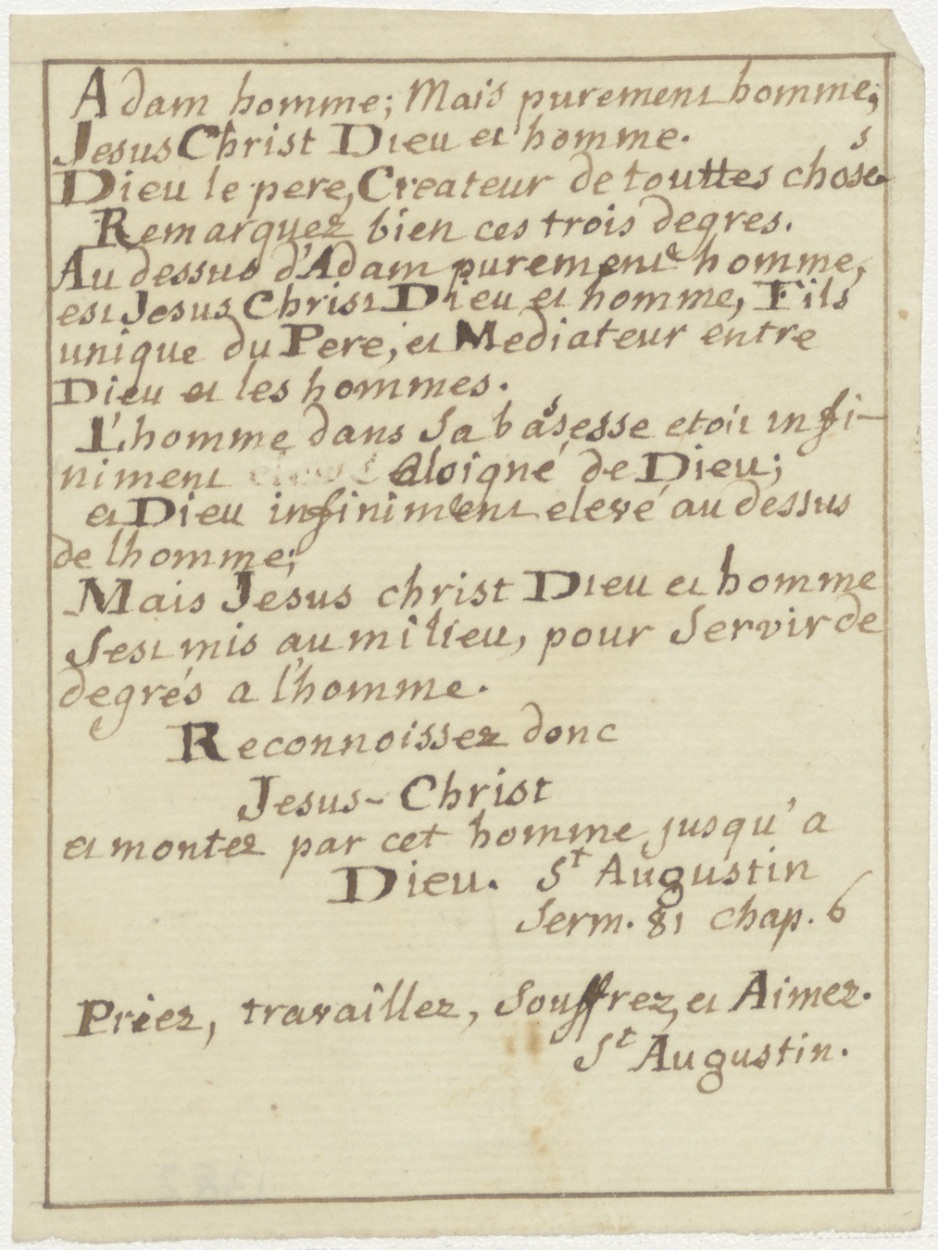 Adam homme; Mais purement homme;
Jesus Christ Dieu et homme.
Dieu le pere, Createur de touttes choses
Remarquez bien ces trois degres.
Au dessus d'Adam purement homme,
est Jesus Christ Dieu et homme, Fils
unique du Pere, et Mediateur entre
Dieu et les hommes.
L'homme dans sa bassesse etoit infi-
niment eloigné de Dieu;
et Dieu infiniment elevé au dessus
de lhomme;
Mais Jesus christ Dieu et homme
sest mis au milieu, pour servir de
degrés a l'homme.
Reconnoissez donc
Jesus-Christ
et montez par cet homme jusqu'a
Dieu. St Augustin
Serm. 81 chap. 6
Priez, travaillez, souffrez, et Aimez.
St Augustin.